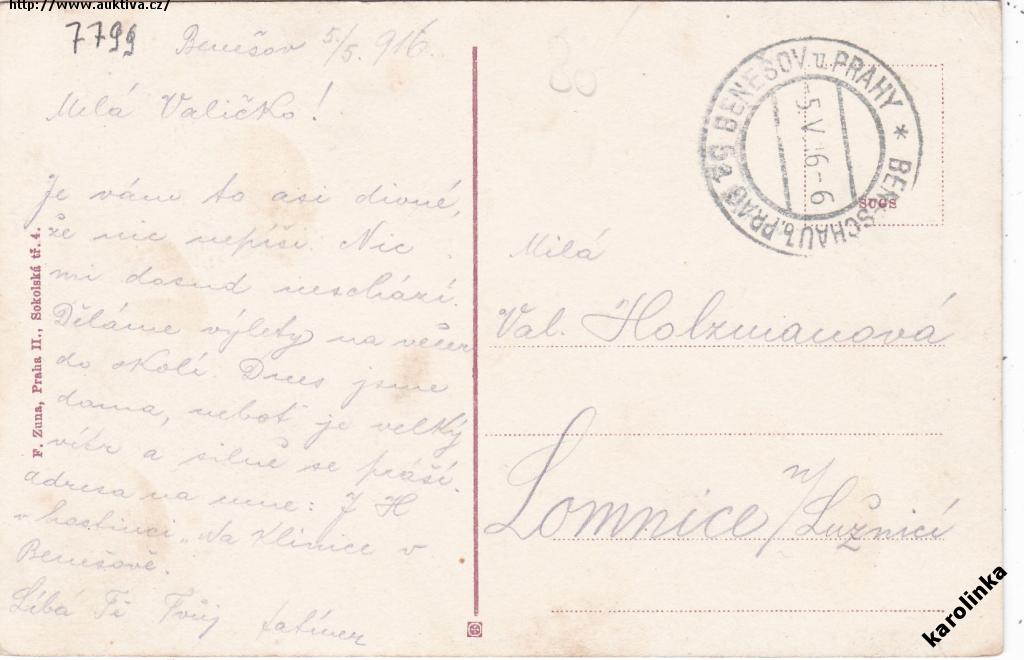 http://www.auktiva.cz/
7799
Benešov 5/5. 916.
Milá Valičko!
Je vám to asi divné,
že nic nepíši. Nic
mi dosud neschází.
Děláme výlety na večer
do okolí. Dnes jsme
doma, neboť je velký
vítr a silně se práší.
Adresa na mne: J H
v hostinci „Na Klinice v
Benešově.
Líbá Tě Tvůj tatínek
F. Zuna, Praha II., Sokolská tř. 4.
BENEŠOV u PRAHY * BENESCHAU b. PRAG
5. V. 16-6
Milá
Val. Holzmanová
Lomnice n/Lužnicí
karolinka